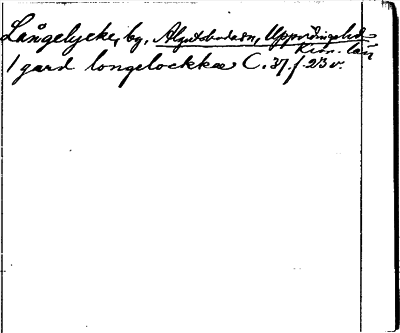 Långelycke, by, Algutsboda sn, Uppvidinge hd
Kron. län
1 gard longelockkæ C. 37. f. 213 v.